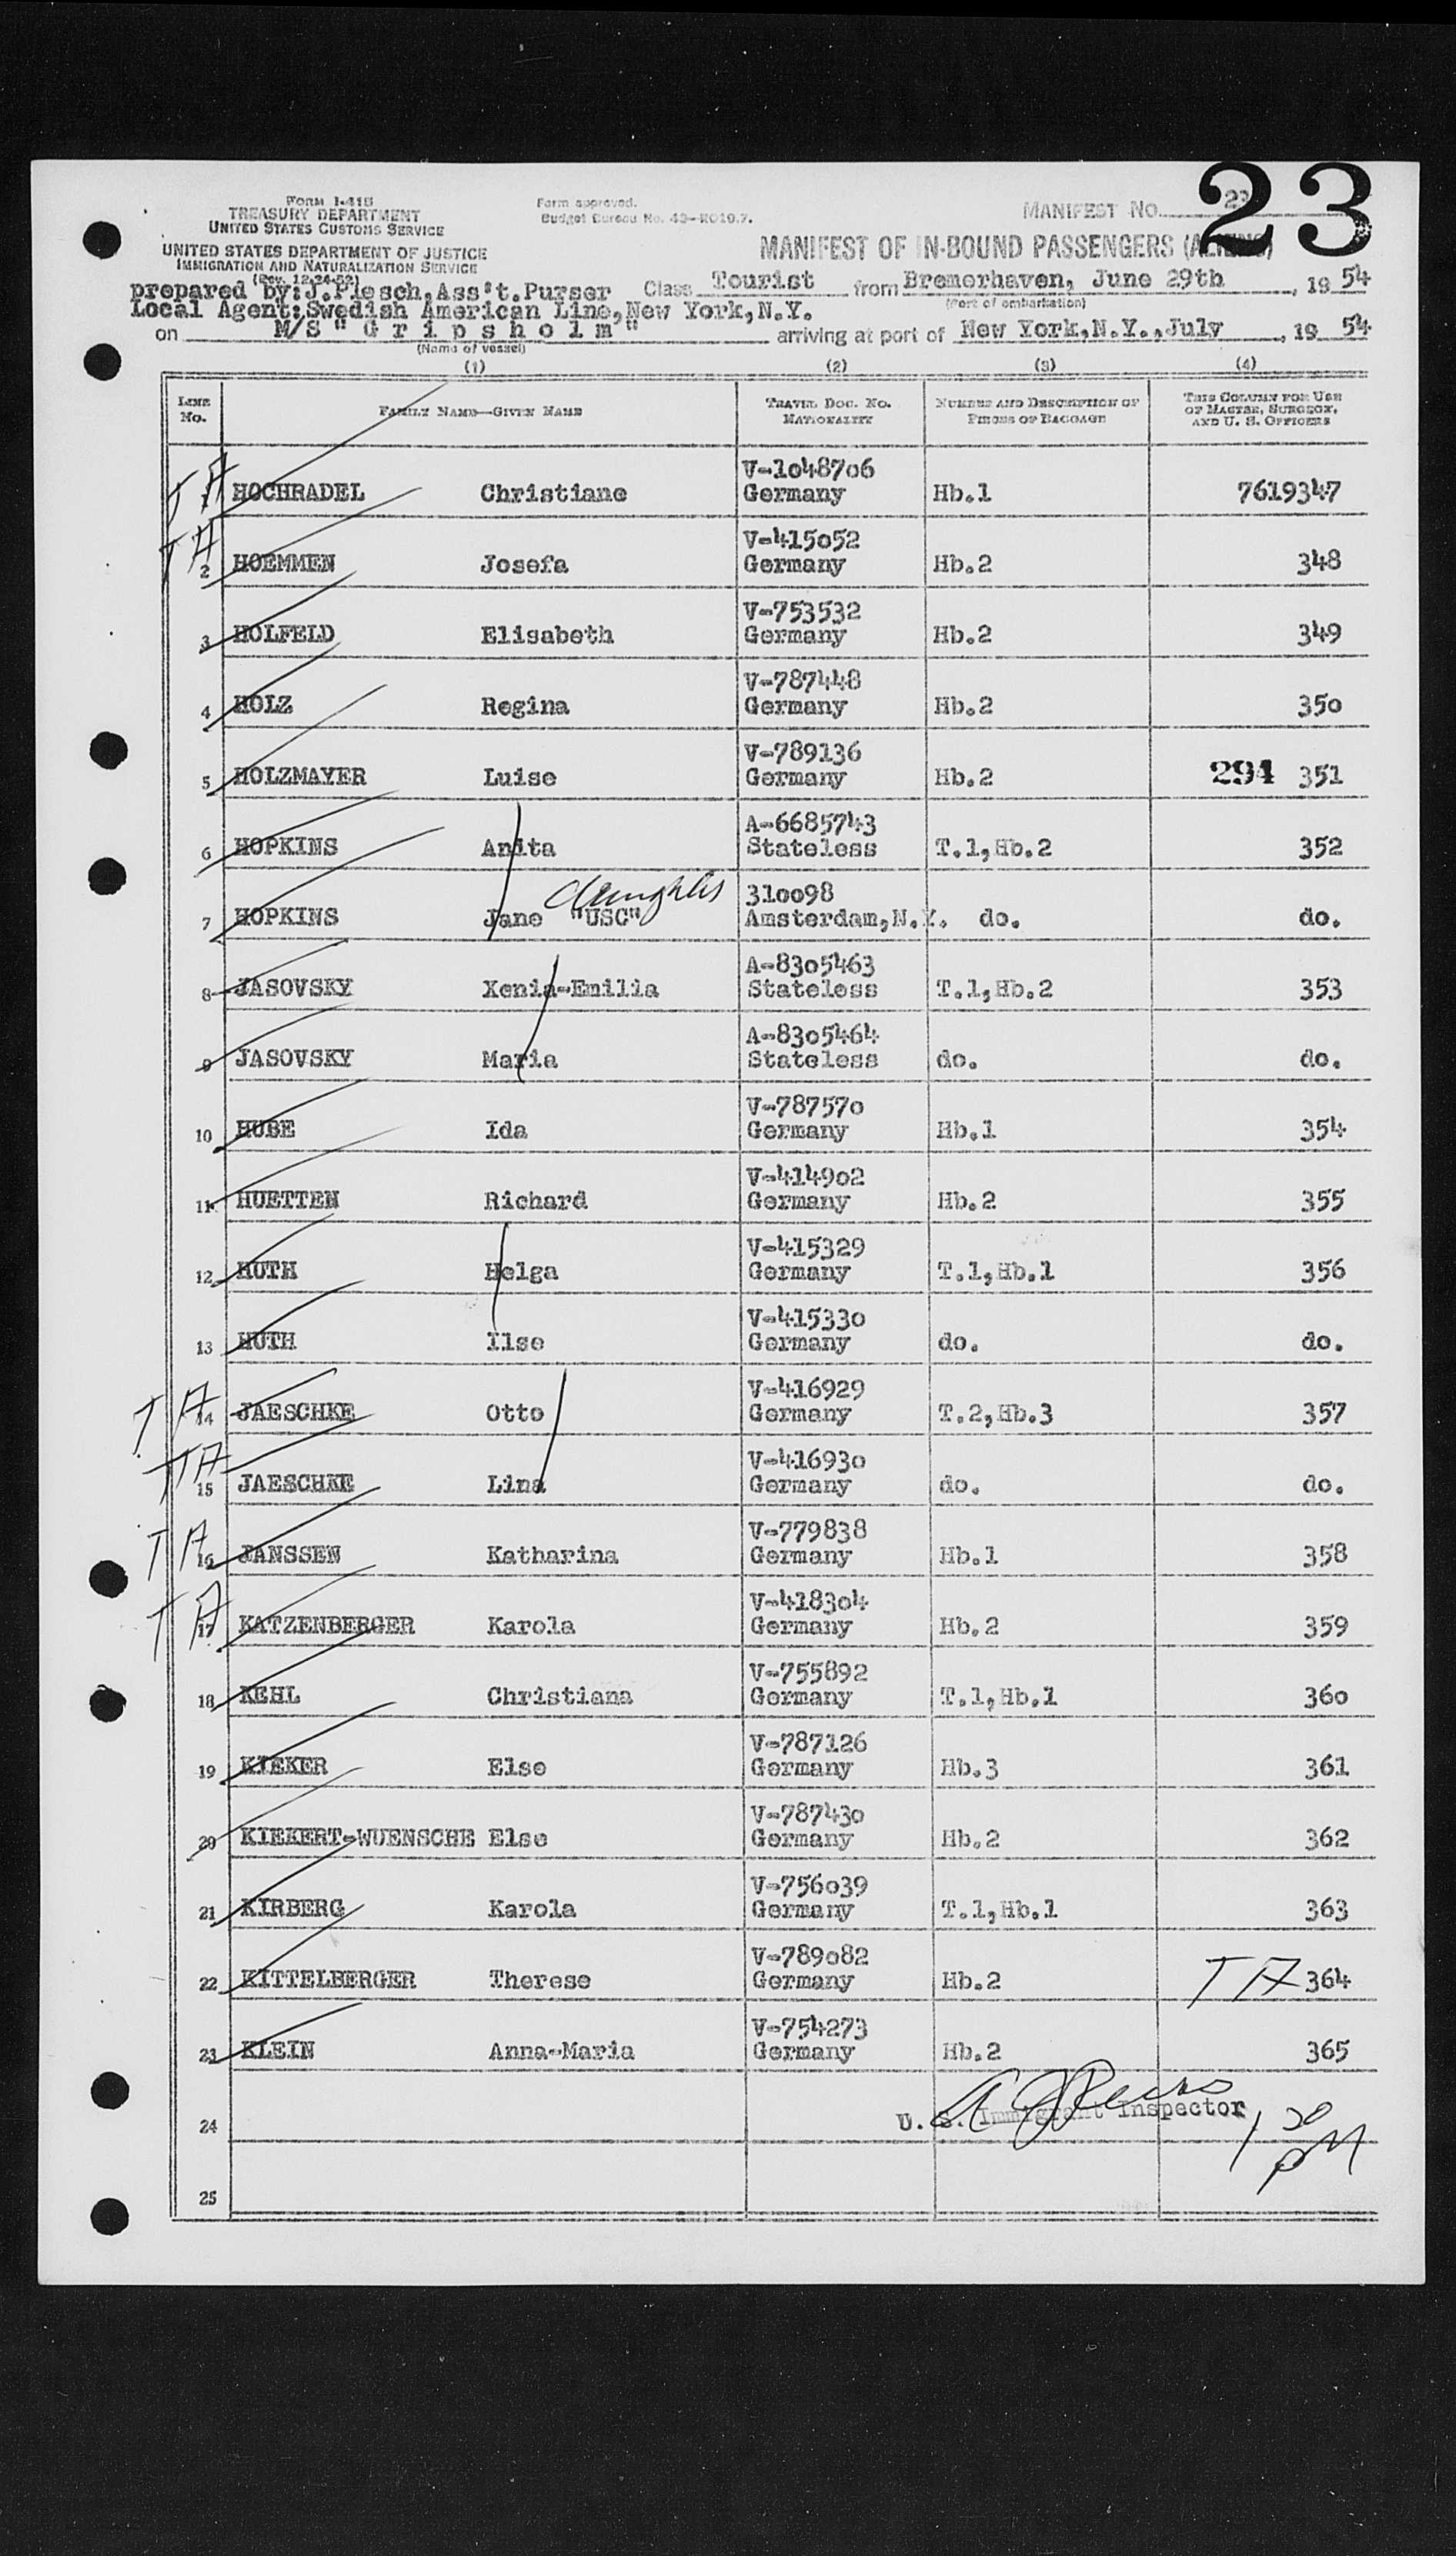 23
FORM I-418
TREASURY DEPARTMENT
UNITED STATES CUSTOMS SERVICE
UNITED STATES DEPARTMENT OF JUSTICE
IMMIGRATION AND NATURALIZATION SERVICE
(Rev. 12-24-52)
Form approved.
Budget Bureau No. 43-R019.7.
MANIFEST NO.
MANIFEST OF IN-BOUND PASSENGERS (ALIENS)
prepared by:J.Plesch,Ass't.Purser Class Tourist from Bremerhaven, June 29th, 19 54
(Port of embarkation)
Local Agent:Swedish American Line,New York,N.Y.
on M/S "Gripsholm" arriving at port of New York,N.Y.,July, 19 54
(Name of vessel)
(1) (2) (3) (4)
LINE No. FAMILY NAME—GIVEN NAME TRAVEL DOC. No. NATIONALITY NUMBER AND DESCRIPTION OF PIECES OF BAGGAGE THIS COLUMN FOR USE OF MASTER, SURGEON, AND U. S. OFFICERS
V-1048706
TA 1 HOCHRADEL Christiane Germany Hb.1 7619347
V-415052
TA 2 HOEMMEN Josefa Germany Hb.2 348
V-753532
3 HOLFELD Elisabeth Germany Hb.2 349
V-787448
4 HOLZ Regina Germany Hb.2 350
V-789136
5 HOLZMAYER Luise Germany Hb.2 294 351
A-6685743
6 HOPKINS Anita Stateless T.1,Hb.2 352
daughter 310098
7 HOPKINS Jane "USC" Amsterdam,N.Y. do. do.
A-8305463
8 JASOVSKY Xenia-Emilia Stateless T.1,Hb.2 353
A-8305464
9 JASOVSKY Maria Stateless do. do.
V-787570
10 HUBE Ida Germany Hb.1 354
V-414902
11 HUETTEN Richard Germany Hb.2 355
V-415329
12 HUTH Helga Germany T.1,Hb.1 356
V-415330
13 HUTH Ilse Germany do. do.
V-416929
TA 14 JAESCHKE Otto Germany T.2,Hb.3 357
V-416930
TA 15 JAESCHKE Lina Germany do. do.
V-779838
TA 16 JANSSEN Katharina Germany Hb.1 358
V-418304
TA 17 KATZENBERGER Karola Germany Hb.2 359
V-755892
18 KEHL Christiana Germany T.1,Hb.1 360
V-787126
19 KIEKER Else Germany Hb.3 361
V-787430
20 KIEKERT-WUENSCHE Else Germany Hb.2 362
V-756039
21 KIRBERG Karola Germany T.1,Hb.1 363
V-789082
22 KITTELBERGER Therese Germany Hb.2 TA 364
V-754273
23 KLEIN Anna-Maria Germany Hb.2 365
U. S. Immigrant Inspector
24
1 30 PM
25